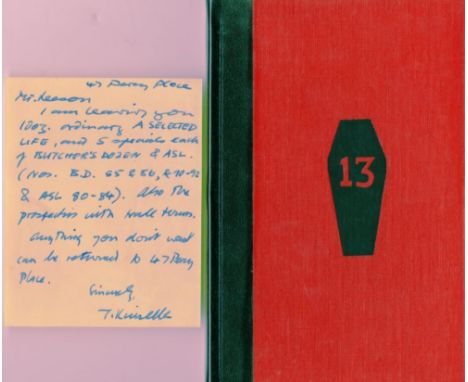 47 Percy Place
Mr. Keason
I am leaving you
10 oz. ordinary A SELECTED
LIFE, and 5 specials each
of BUTCHER'S DOZEN & ASL.
(Nos. B.D. 65 & 86, & 90-92
& ASL 80-84). Also the
prospectus with trade terms.
Anything you don't want
can be returned to 47 Percy
Place.
Sincerely,
T. Kinsella
13